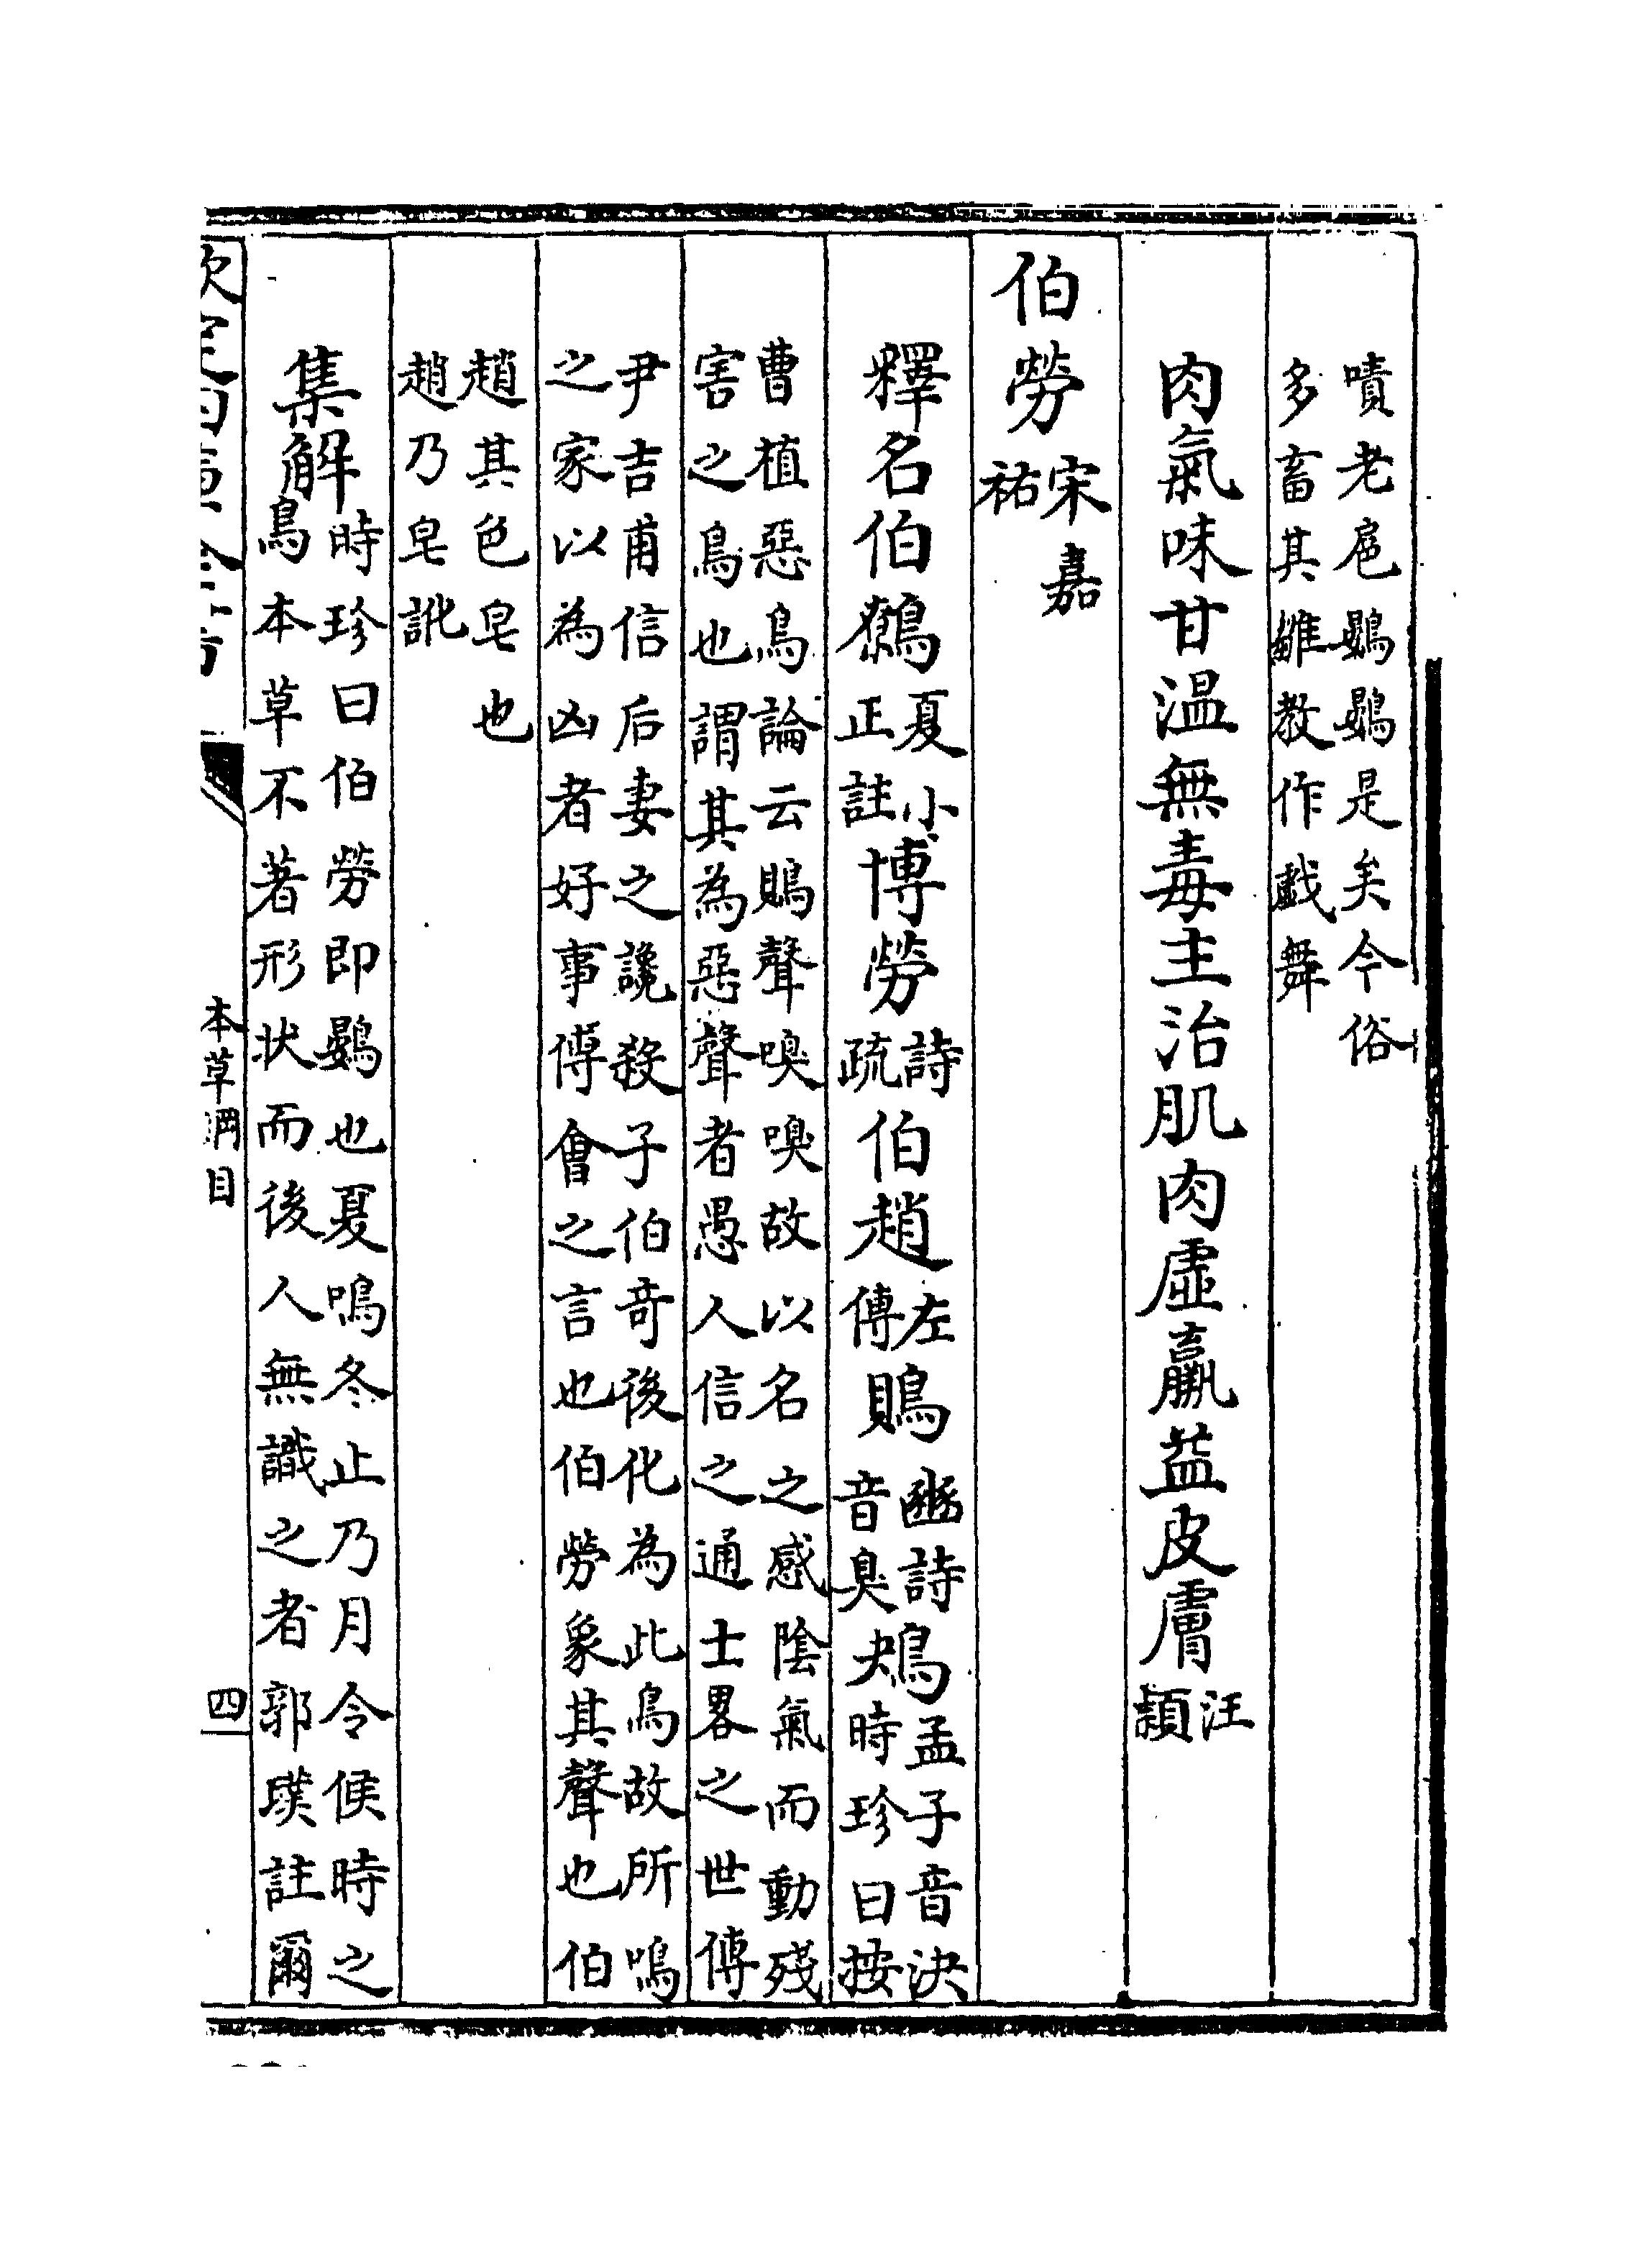 嘖老扈鷃鷃是矣今俗
多畜其雛教作戲舞
肉氣味甘温無毒主治肌肉虛羸益皮膚汪頴
伯勞宋嘉祐
釋名伯鷯夏小正註博勞詩疏伯趙左傳鵙豳詩音臭鴂孟子音決時珍曰按
曹植惡鳥論云鵙聲嗅嗅故以名之感陰氣而動殘
害之鳥也謂其為惡聲者愚人信之通士畧之世傳
尹吉甫信后妻之讒殺子伯奇後化為此鳥故所鳴
之家以為凶者好事傅會之言也伯勞象其聲也伯
趙其色皂也
趙乃皂訛
集解時珍曰伯勞即鶪也夏鳴冬止乃月令候時之
鳥本草不著形状而後人無識之者郭璞註爾
欽定四庫全書
本草綱目
四